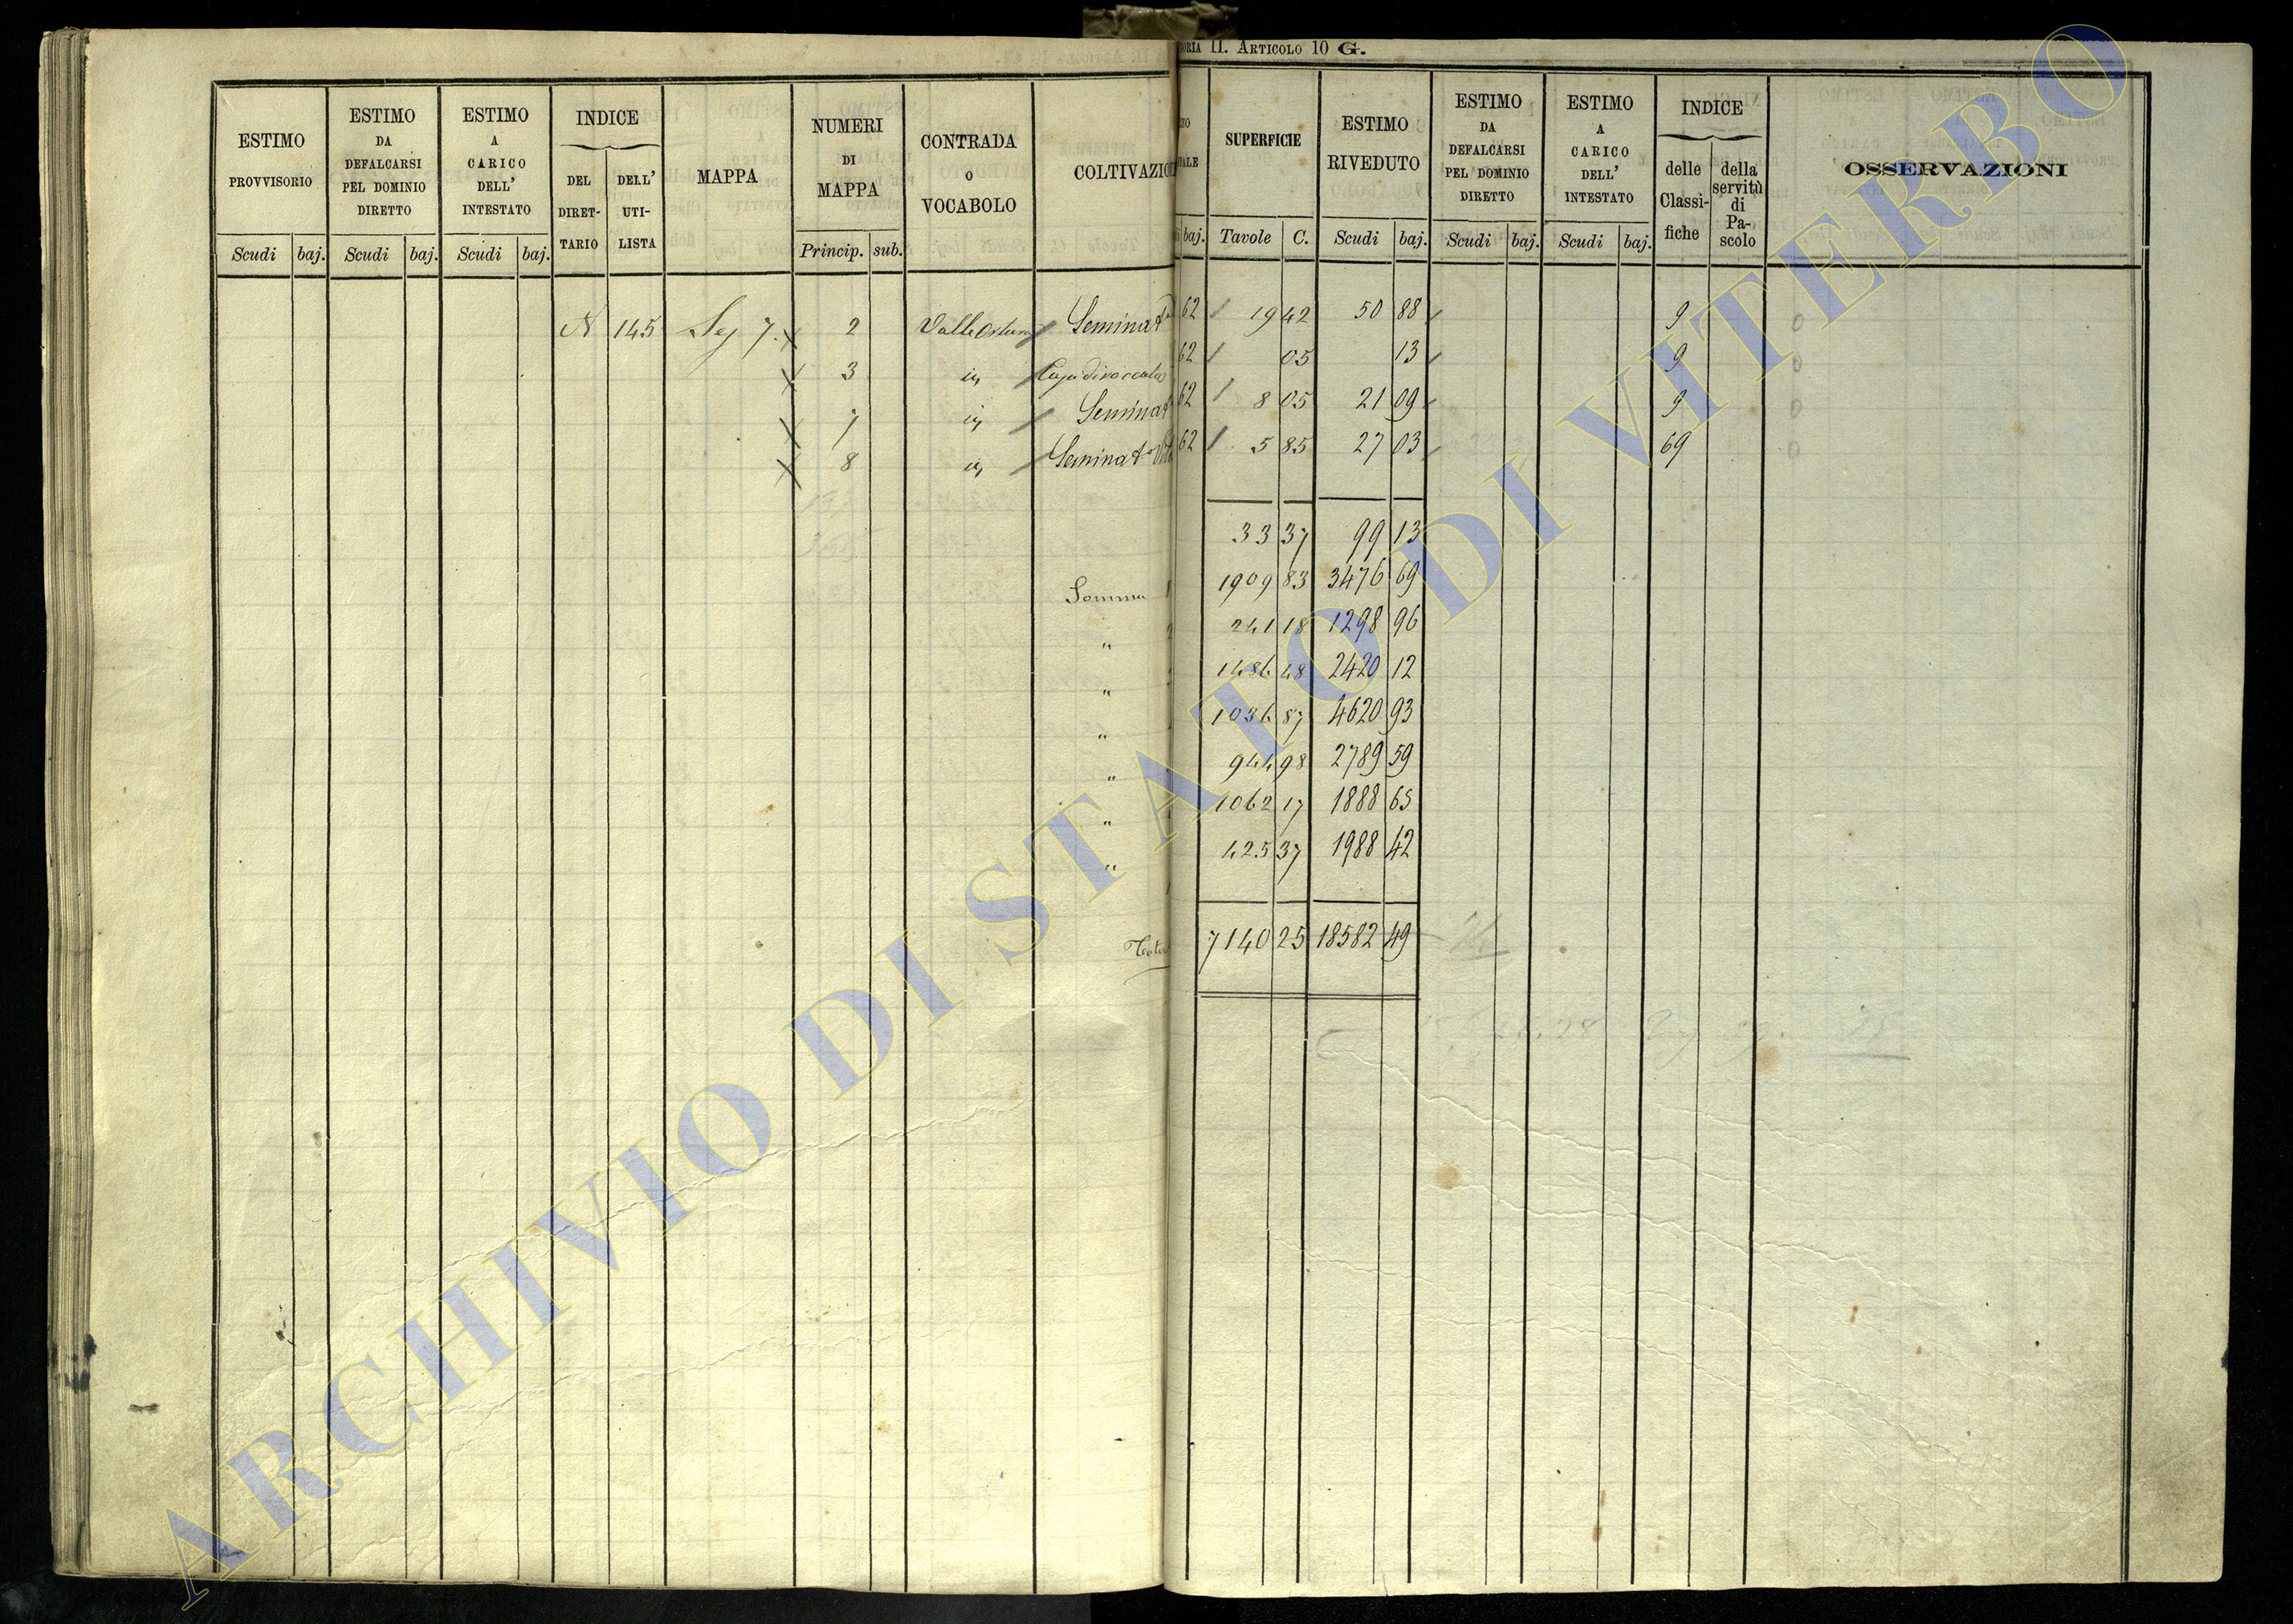 ORIA II. ARTICOLO 10 G.
ESTIMO PROVVISORIO
ESTIMO DA DEFALCARSI PEL DOMINIO DIRETTO
ESTIMO A CARICO DELL' INTESTATO
INDICE
DEL DIRETTARIO
DELL' UTILISTA
MAPPA
NUMERI DI MAPPA
CONTRADA O VOCABOLO
COLTIVAZIO
Scudi baj. Scudi baj. Scudi baj. Princip. sub.
N 145 Sez 7. 2 Valle Seminat
3 id
7 id Seminat
8 id Seminat
Somma 1
"
"
"
"
"
"
Tota
SUPERFICIE
ESTIMO RIVEDUTO
ESTIMO DA DEFALCARSI PEL DOMINIO DIRETTO
ESTIMO A CARICO DELL' INTESTATO
INDICE
delle Classifiche
della servitù di Pascolo
OSSERVAZIONI
baj. Tavole C. Scudi baj. Scudi baj. Scudi baj.
62 19 42 50 88 9 0
62 05 13 9 0
62 8 05 21 09 9 0
62 5 85 27 03 69 0
33 37 99 13
1909 83 3476 69
241 18 1298 96
1486 48 2420 12
1036 87 4620 93
944 98 2789 59
1062 17 1888 65
425 37 1988 42
7140 25 18582 49
ARCHIVIO DI STATO DI VITERBO